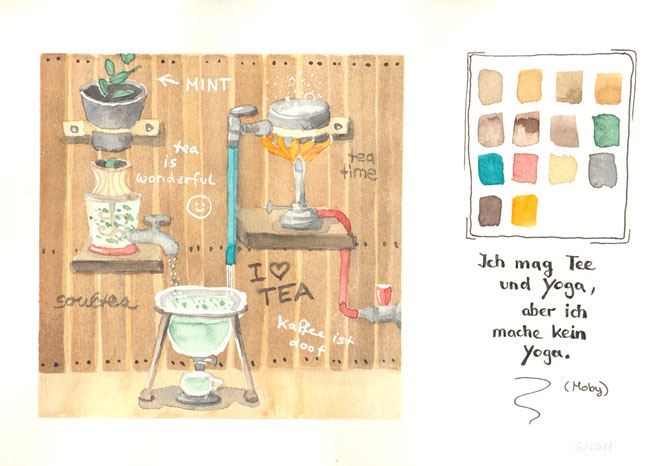 ← MINT
tea
is
wonderful
☺
tea
time
soultea
I ♥
TEA
Kaffee ist
doof
Ich mag Tee
und Yoga,
aber ich
mache kein
Yoga.
(Moby)
6/2021